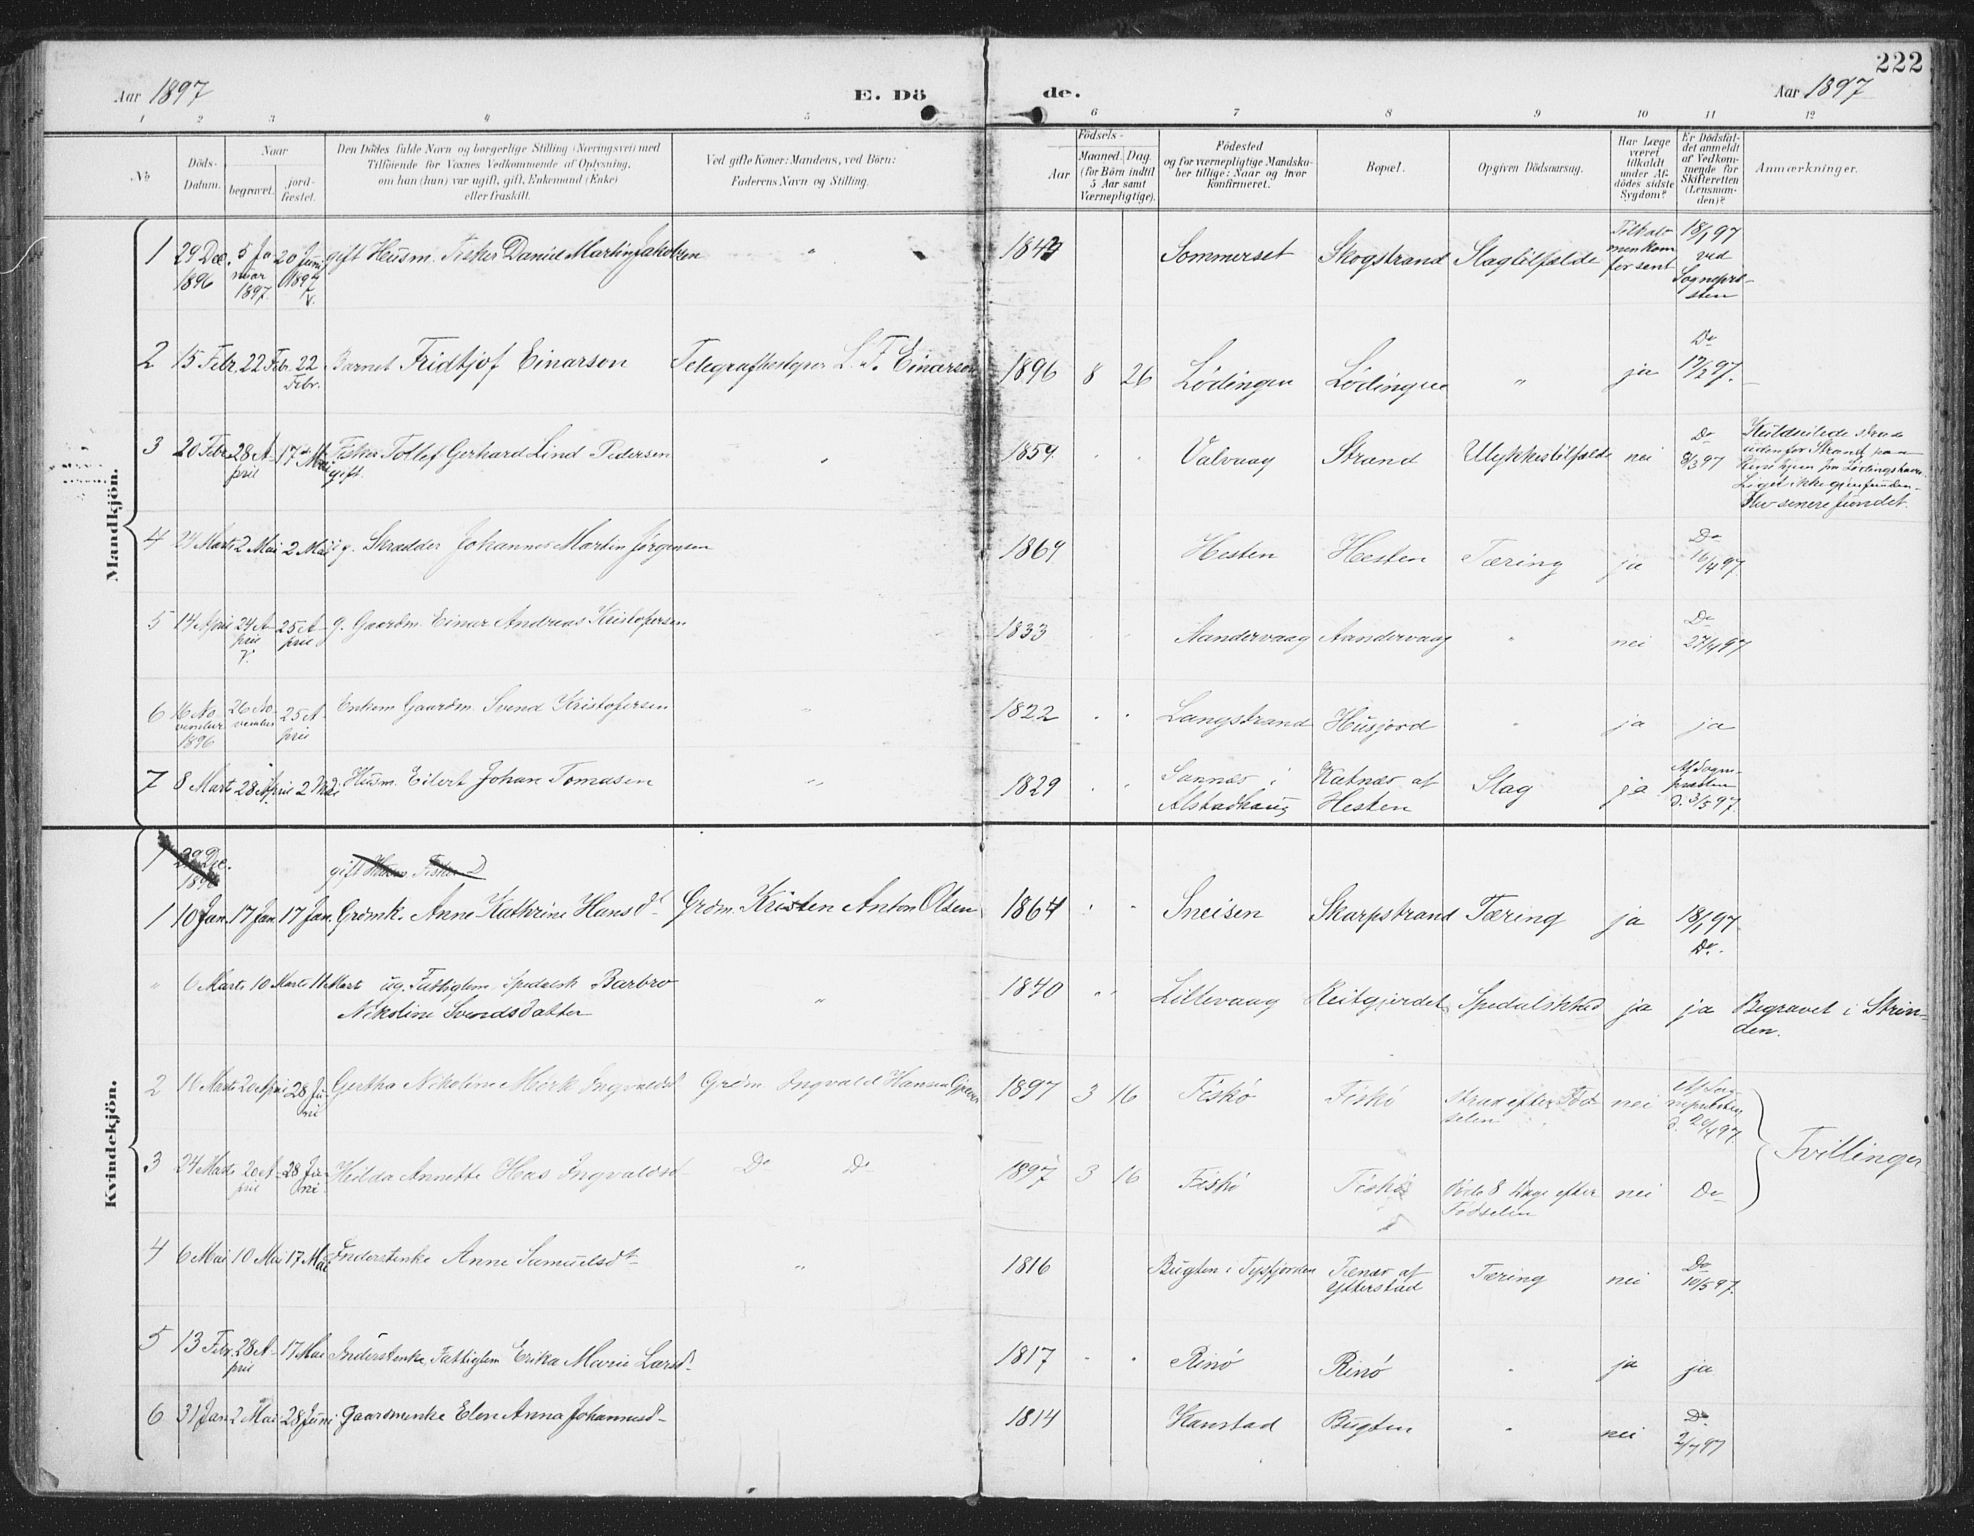 222
Aar 1897 E. Döde. Aar 1897
1 2 3 4 5 6 7 8 9 10 11 12
No
Döds-Datum.
Naar
begravet.
jord-fæstet.
Den Dödes fulde Navn og borgerlige Stilling (Næringsvei) med
Tilföiende for Voxnes Vedkommende af Oplysning,
om han (hun) var ugift, gift, Enkemand (Enke)
eller fraskilt.
Ved gifte Koner: Mandens, ved Börn:
Faderens Navn og Stilling.
Födsels-
Aar
Maaned. Dag.
(for Börn indtil
5 Aar samt
Værnepligtige).
Födested
og for værnepligtige Mandska-
ber tillige: Naar og hvor
konfirmeret.
Bopæl.
Opgiven Dödsaarsag.
Har Læge
været
tilkaldt
under Af-
dödes sidste
Sygdom?
Er Dödsfal-
det anmeldt
af Vedkom-
mende for
Skifteretten
(Lensman-
den)?
Anmærkninger.
Mandkjön.
1 29 Dec. 1896 5 Januar 1897. 20 Juni 1897 gift Husm. Fisker Daniel Martin Jakobsen " Sommerset Skogstrand Slagtilfælde Tilkaldt men kom for sent 18/1 97 ved Sognepresten
2 15 Febr. 22 Febr. 22 Febr. Barnet Fridtjof Einarson Telegrafbestyrer L. F. Einarson 1896 8 26 Lödingen Lödingen " ja Do 17/2 97.
3 20 Febr. 28 April 17de Mai Fisker Tollef Gerhard Lind Pedersen gift. " 1859 Valvaag Strand Ulykkestilfælde nei Do 8/3 97 Kuldseilede udenfor Strand paa Liget ikke gjenfunden. Blev senere fundet.
4 Marts 2 Mai 2 Mai g. Skrædder Johannes Martin Jörgensen 1869 Hesten Hesten Tæring ja Do 16/4 97
5 14 April 24 April 25 April g. Gaardm. Einar Andreas Kristofersen 1833 Aandervaag Aandervaag " nei Do 27/4 97
6 16 November 1896 26 November 25 April Enkem. Gaardm. Svend Kristofersen " 1822 Langstrand Husjord " ja ja
7 8 Marts 28 April 2 Mai Husm. Eilert Johan Tomasen " 1829 Sannæs i Alstadhaug Katnæs af Hesten Slag ja Af Sognepresten d. 3/5 97.
Kvindekjön.
1 29 Dec. 1896 gift Husm. Fisker D
1 10 Jan. 17 Jan. 17 Jan. Grdmk. Anne Kathrine Hansd Grdm. Kristen Anton Olsen 1864 Sneisen Skarpstrand Tæring ja 18/1 97 Do.
" 6 Marts 10 Marts 11 Mart ug. Fattiglem Spedalsk Barbro Nikoline Svendsdatter " 1840 Lillevaag Reitgjerdet Spedalskhed ja ja Begravet i Strinden.
2 16 Marts 20 April 28 Juni Gertha Nikoline Mörk Ingvaldsd Grdm Ingvald Hansen 1897 3 16 Fiskö Fiskö Strax efter Födselen nei Af Sognepresten d. 20/4 97.
3 24 Marts 20 April 28 Juni Hilda Annette Haas Ingvaldsd Do Do 1897 3 16 Fiskö Fiskö 8 Dage efter Födselen nei Do
Tvillinger
4 6 Mai 10 Mai 17 Mai Inderstenke Anne Samuelsdt " 1816 Bugten i Tysfjorden Tienæs af Ytterstad Tæring nei Do 10/5 97.
5 13 Febr. 28 April 17 Mai Inderstenke Fattiglem Erika Marie Larsd 1817 Rinö Rinö " ja ja
6 31 Jan 2 Mai 28 Juni Gaardmenke Elen Anna Johannesd 1814 Kanstad Bugten " nei Do. 2/7 97